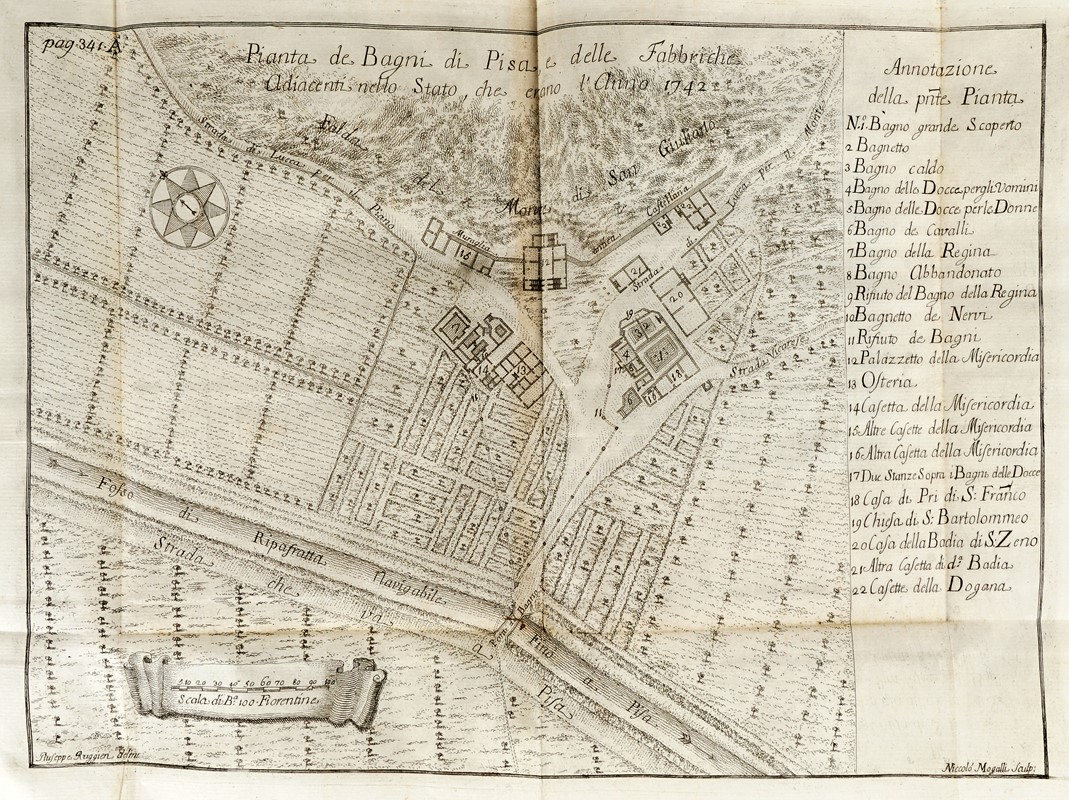 pag. 341. A
Pianta de Bagni di Pisa, e delle Fabbriche
Adiacenti nello Stato, che erano l'Anno 1742
Strada di Lucca per il Piano
Falda del Monte di San Giuliano
Muraglia
Antica
Castellina
Strada di Lucca per il Monte
Strada Vicarese
Fosso di Ripafratta Navigabile Fino a Pisa
Strada che và a Pisa
Ponte
10 20 30 40 50 60 70 80 90 100
Scala di B.ª 100 Fiorentine
Giuseppe Ruggieri delin.
Niccolò Mogalli Sculp:
Annotazione
della pñte Pianta
N.1. Bagno grande Scoperto
2 Bagnetto
3 Bagno caldo
4 Bagno delle Docce per gli Vomini
5 Bagno delle Docce per le Donne
6 Bagno de Cavalli
7 Bagno della Regina
8 Bagno Abbandonato
9 Rifiuto del Bagno della Regina
10 Bagnetto de Nervi
11 Rifiuto de Bagni
12 Palazzetto della Misericordia
13 Osteria
14 Casetta della Misericordia
15 Altre Casette della Misericordia
16 Altra Casetta della Misericordia
17 Due Stanze Sopra i Bagni delle Docce
18 Casa di Pri di S. Franco
19 Chiesa di S. Bartolommeo
20 Casa della Badia di S. Zeno
21 Altra Casetta di d.ª Badia
22 Casette della Dogana